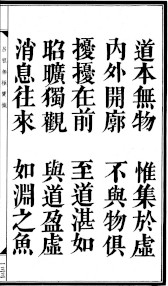 道本無物　惟集於虛
內外開廓　不與物俱
擾擾在前　至道湛如
昭曠獨觀　與道盈虛
消息往來　如淵之魚